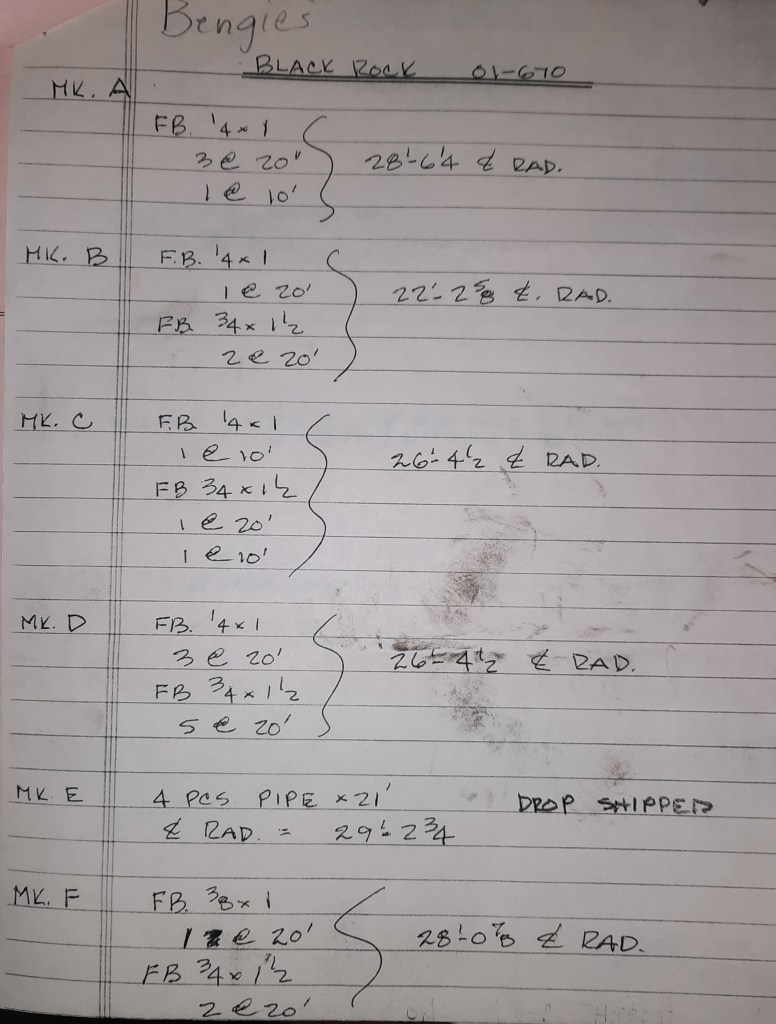 Bengies
BLACK ROCK 01-670
MK. A
FB. 1/4 x 1
3 @ 20'
1 @ 10'
28'-6 1/4 ℄ RAD.
MK. B
F.B. 1/4 x 1
1 @ 20'
FB. 3/4 x 1 1/2
2 @ 20'
22'-2 5/8 ℄. RAD.
MK. C
F.B. 1/4 x 1
1 @ 10'
FB 3/4 x 1 1/2
1 @ 20'
1 @ 10'
26'-4 1/2 ℄ RAD.
MK. D
FB. 1/4 x 1
3 @ 20'
FB 3/4 x 1 1/2
5 @ 20'
26'-4 1/2 ℄ RAD.
MK E
4 PCS PIPE x 21' DROP SHIPPED
℄ RAD. = 29'-2 3/4
MK. F
FB. 3/8 x 1
1 @ 20'
FB 3/4 x 1 1/2
2 @ 20'
28'-0 7/8 ℄ RAD.